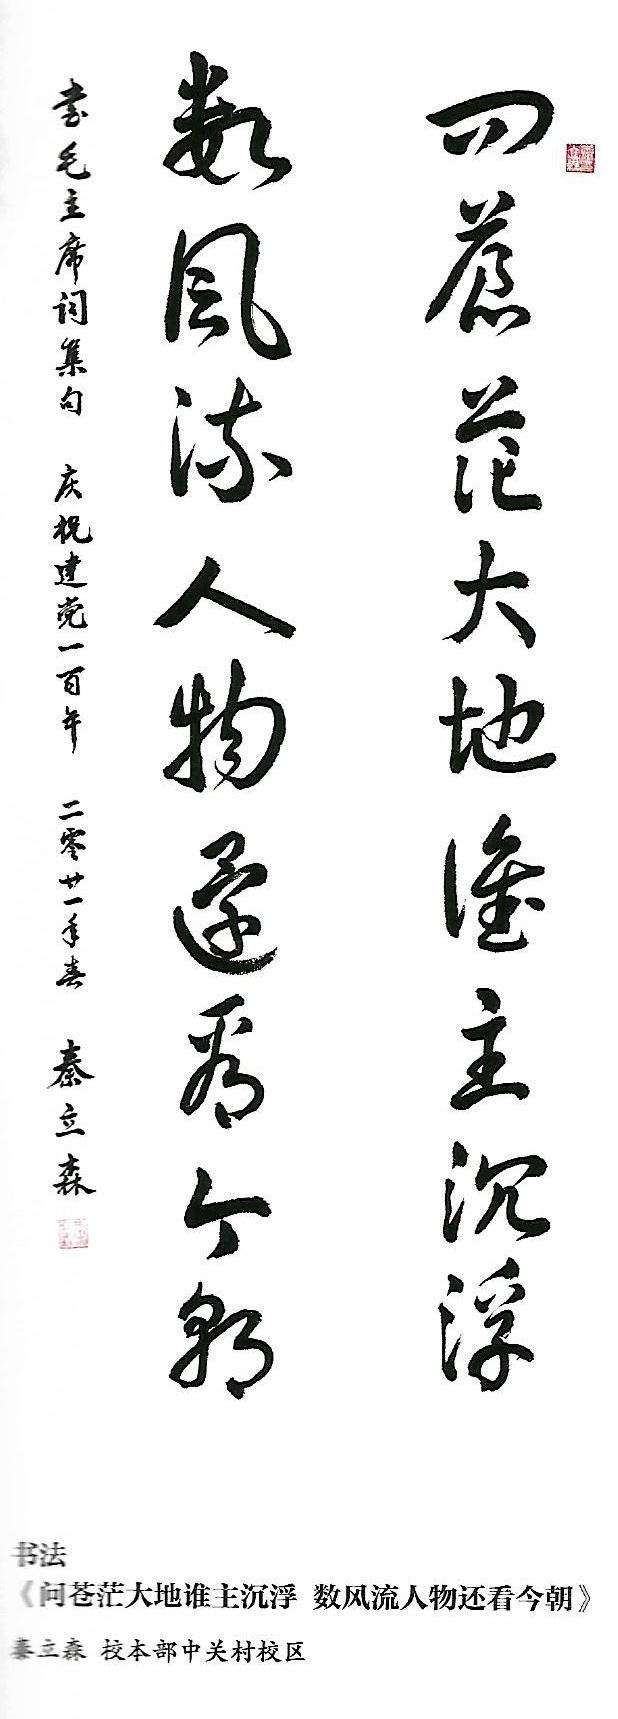 问苍茫大地谁主沉浮
数风流人物还看今朝
书毛主席词集句 庆祝建党一百年 二零廿一年春 秦立森
书法
《问苍茫大地谁主沉浮 数风流人物还看今朝》
秦立森 校本部中关村校区